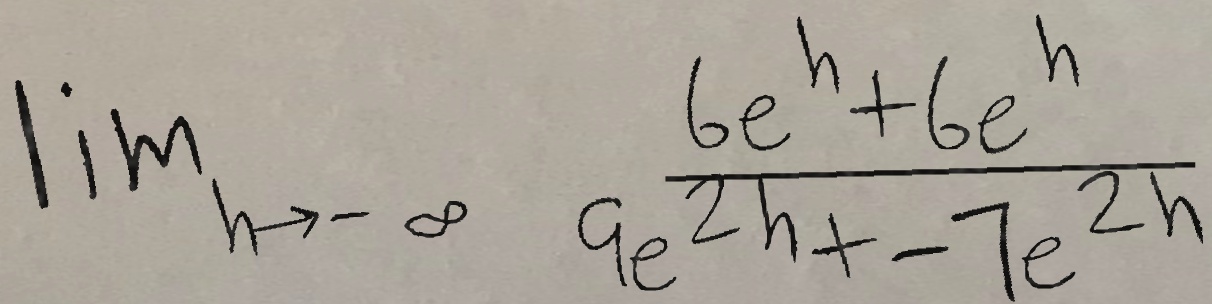 \lim_{h \to -\infty} \frac{6e^{h} + 6e^{h}}{9e^{2h} + -7e^{2h}}